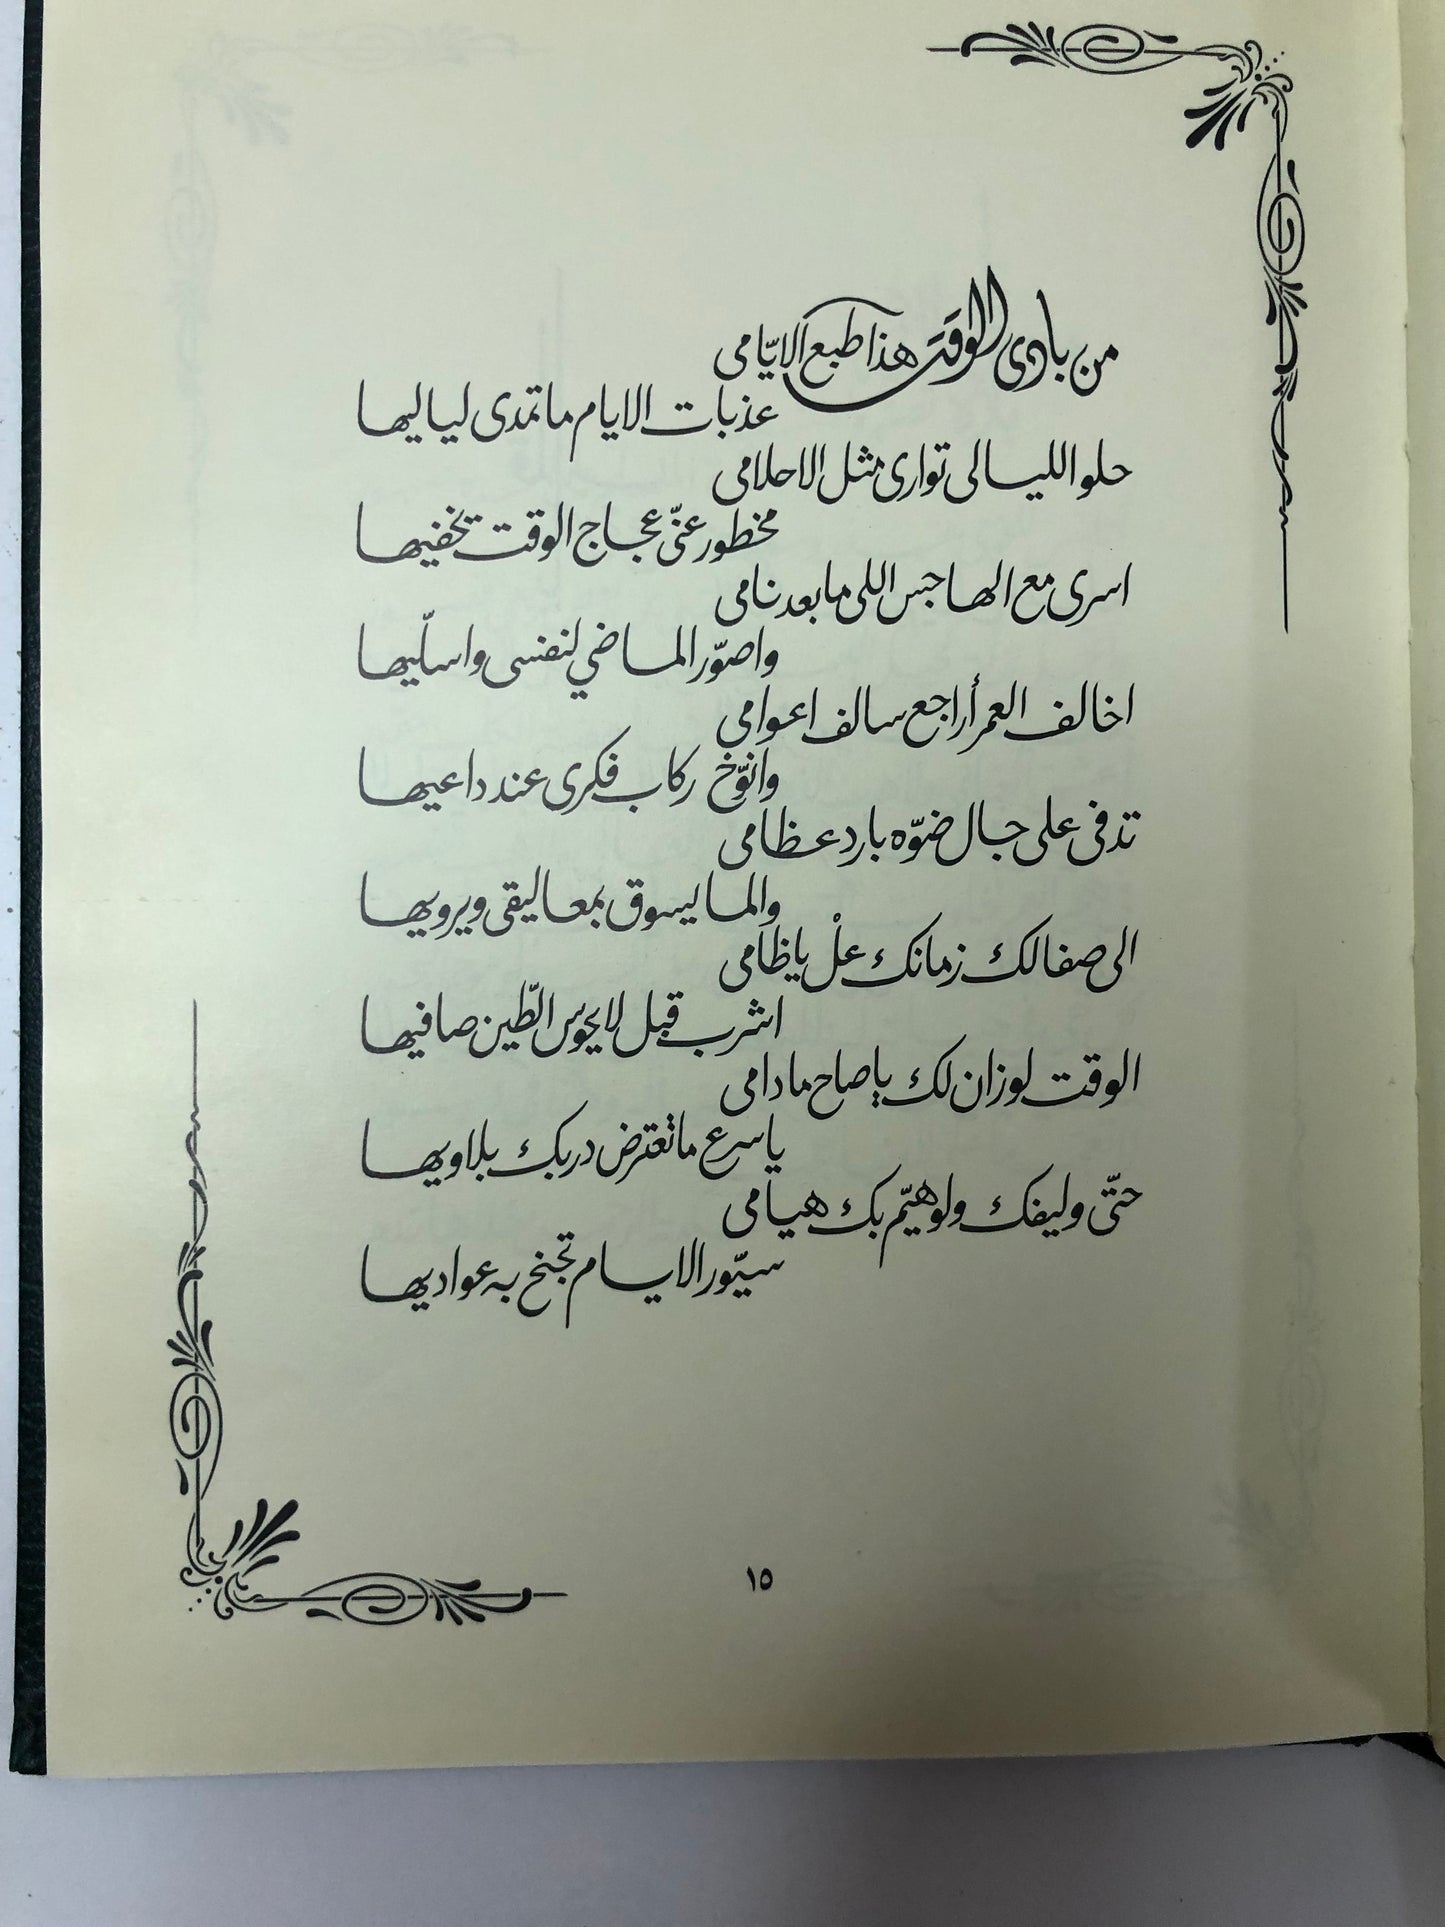 من بادى الوقت هذا طبع الايّامى
عذبات الايام ماتمدى لياليها
حلو الليالى توارى مثل الاحلامى
مخطور عنّى عجاج الوقت يخفيها
اسرى مع الهاجس اللى مابعد نامى
واصوّر الماضي لنفسى واسلّيها
اخالف العمر أراجع سالف اعوامى
وانوّخ ركاب فكرى عند داعيها
تدفى على جال ضوّه بارد عظامى
والما يسوق بمعاليقى ويرويها
الى صفالك زمانك علْ ياظامى
اشرب قبل لايحوس الطّين صافيها
الوقت لوزان لك ياصاح مادامى
ياسرع ماتعترض دربك بلاويها
حتّى وليفك ولوهيّم بك هيامى
سيّور الايام تجنح به عواديها
١٥